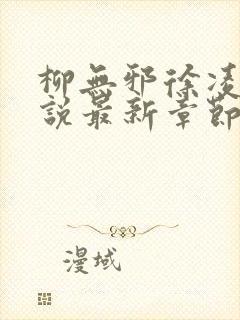 柳無邪徐凌
說最新章節
漫域